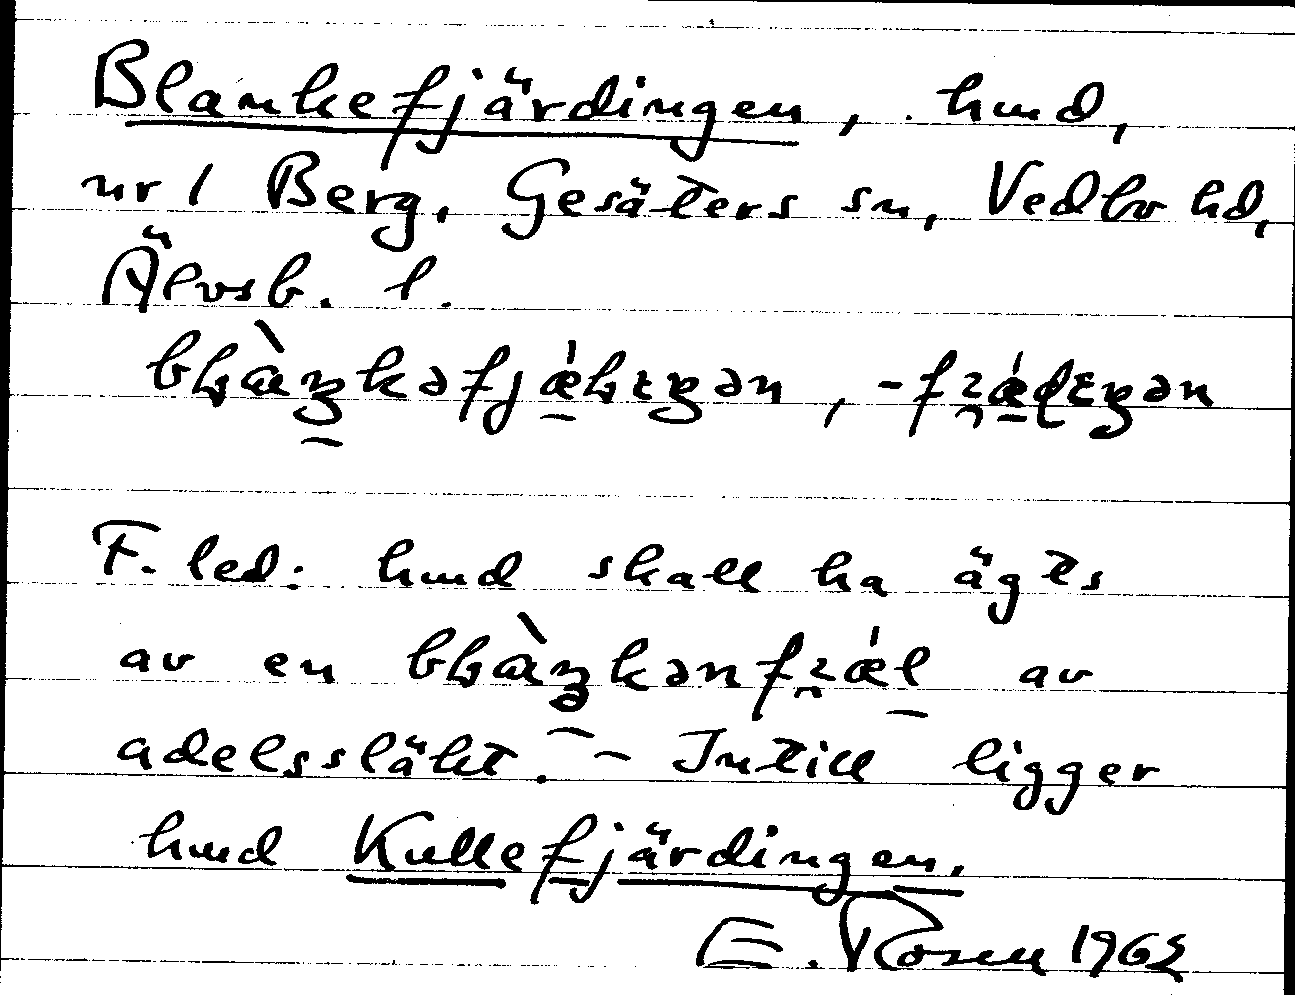 Blankefjärdingen, hmd,
nr 1 Berg, Gesäters sn, Vedbo hd,
Älvsb. l.
F. led: hmd skall ha ägts
av en av
adelssläkt. – Intill ligger
hmd Kullefjärdingen.
E. Rosen 1962